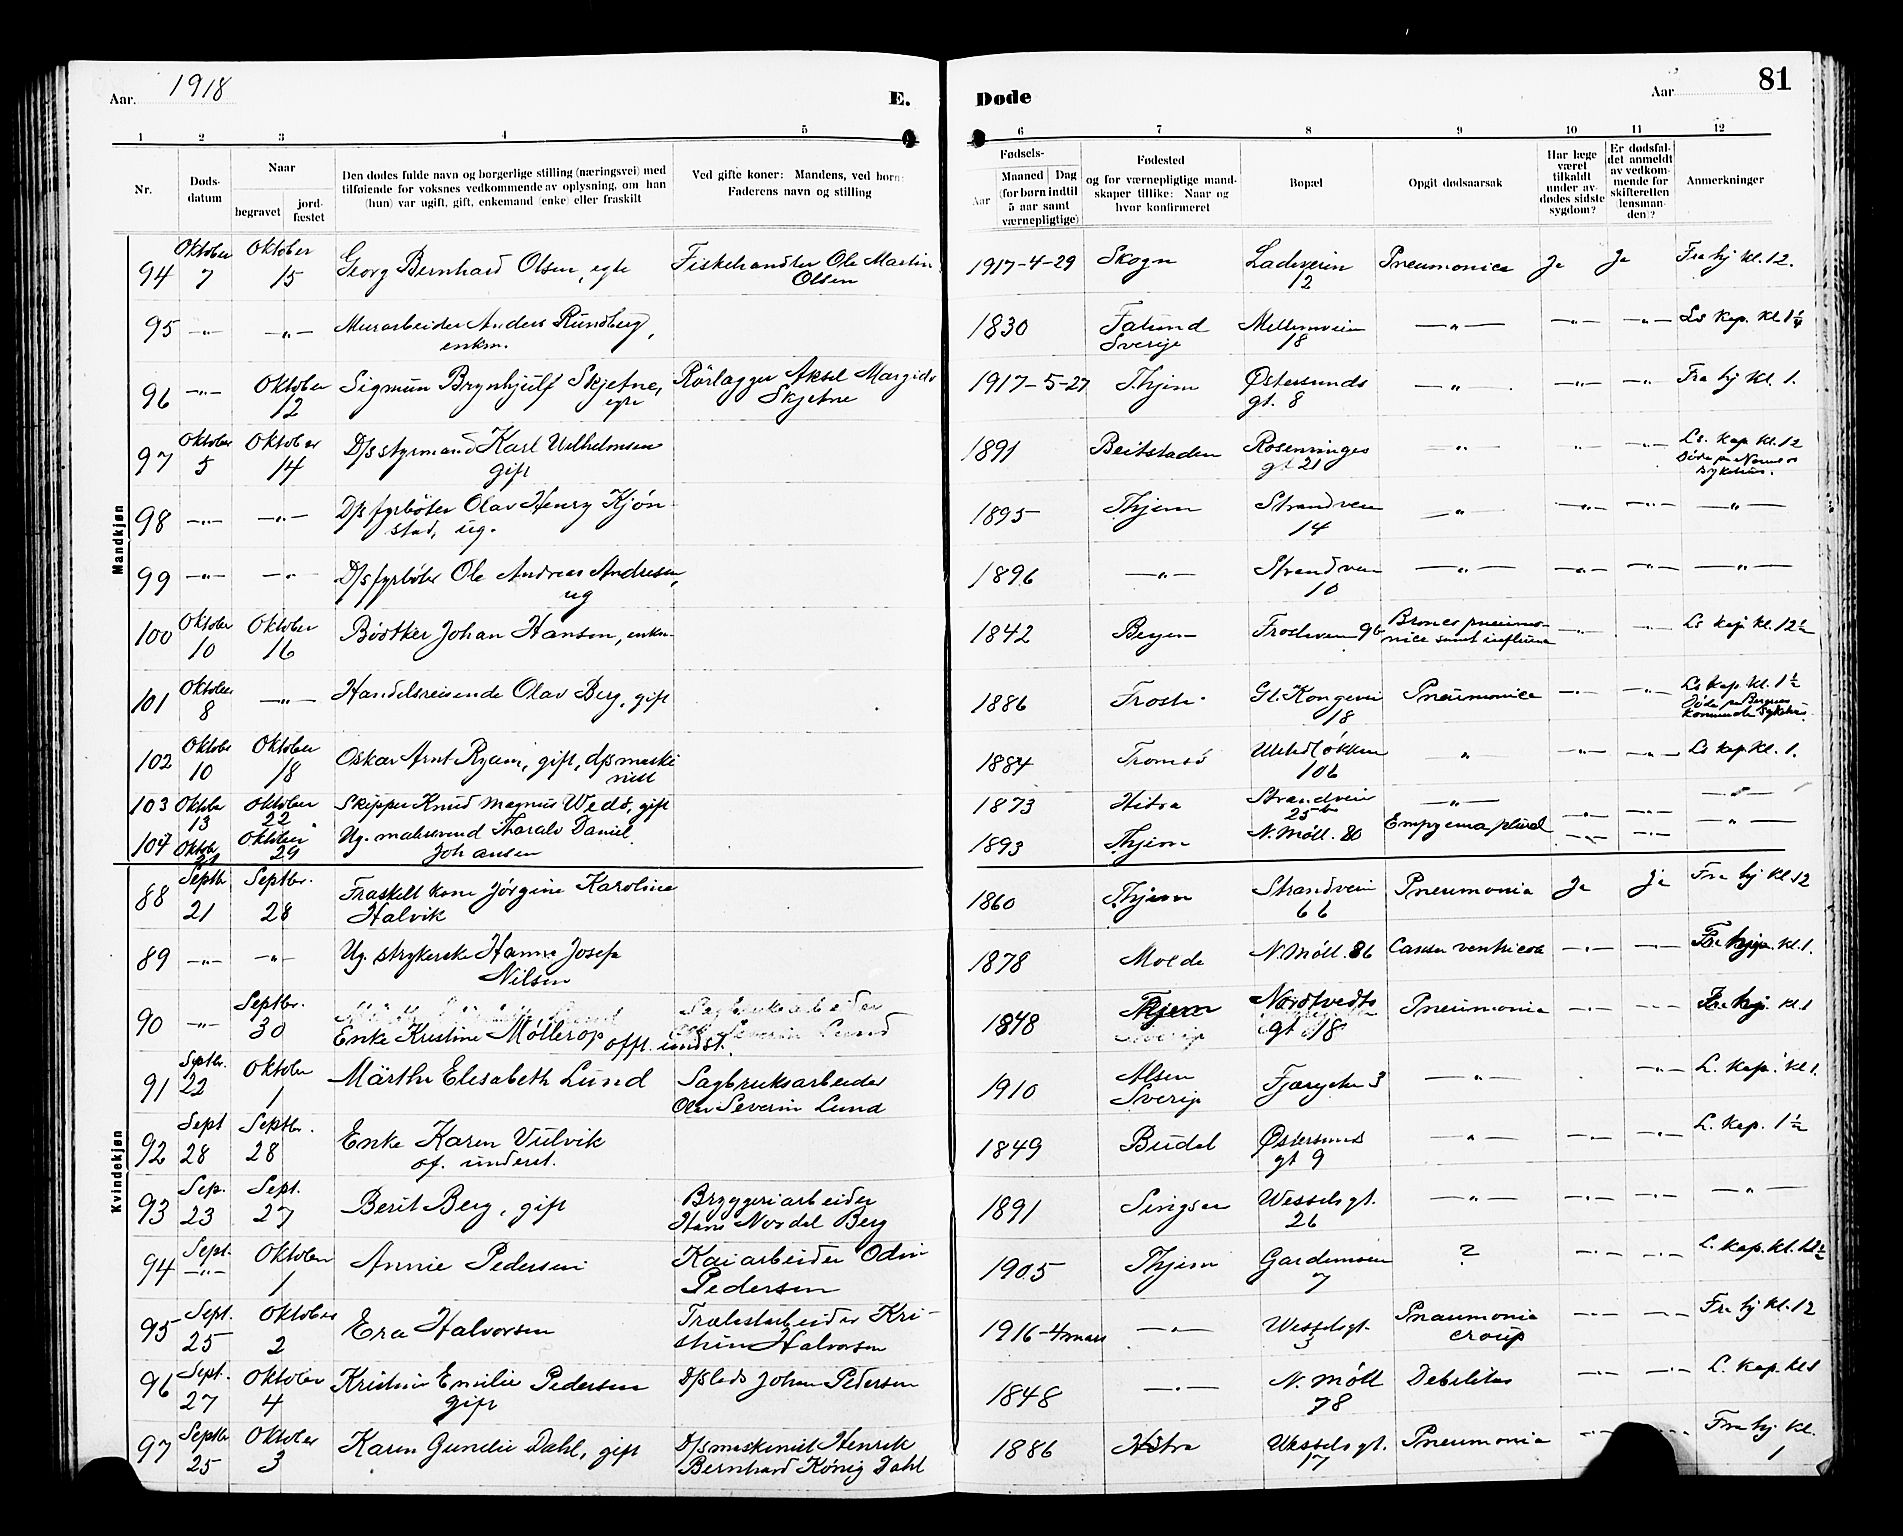 Aar. 1918
E.
Døde
Aar
81
1 2 3 4 5
6 7 8 9 10 11 12
Nr.
Døds-
datum
Naar
begravet
jord-
fæstet
Den dødes fulde navn og borgerlige stilling (næringsvei) med
tilføiende for voksnes vedkommende av oplysning, om han
(hun) var ugift, gift, enkemand (enke) eller fraskilt
Ved gifte koner: Mandens, ved børn:
Faderens navn og stilling
Fødsels-
Aar
Maaned
Dag
(for børn indtil
5 aar samt
værnepligtige)
Fødested
og for værnepligtige mand-
skaper tillike: Naar og
hvor konfirmeret
Bopæl
Opgit dødsaarsak
Har læge
været
tilkaldt
under av-
dødes sidste
sygdom?
Er dødsfal-
det anmeldt
av vedkom-
mende for
skifteretten
(lensman-
den)?
Anmerkninger
Mandkjøn
94 Oktober 7 Oktober 15 Georg Bernhard Olsen, egte Fiskehandler Ole Martin Olsen 1917-4-29 Skogn Ladeveien 12 Pneumonia Ja Ja Fra hj kl. 12.
95 —"— —"— Murarbeider Anders Rundberg, enkm. 1830 Falund Sverige Mellemveien 18 —"— —"— —"— Ls kap. kl 1 1/4
96 —"— Oktober 12 Sigmun Brynhjulf Skjetne, egte Rörlægger Aksel Margido Skjetne 1917-5-27 Thjem Østersunds gt. 8 —"— —"— —"— Fra hj kl. 1.
97 Oktober 5 Oktober 14 D/s styrmand Karl Vilhelmsen gift 1891 Beitstaden Rosenvinges gt 21 —"— —"— —"— Ls. kap kl. 12
98 —"— —"— D/s fyrböter Olav Henry Kjøn- stad, ug. 1895 Thjem Strandveien 14 —"— —"— —"— —"—
99 —"— —"— D/s fyrböter Ole Andreas Andresen, ug 1896 —"— Strandveien 10 —"— —"— —"— —"—
100 Oktober 10 Oktober 16 Bödtker Johan Hansen, enkm. 1842 Bergen 96 —"— —"— Ls kap kl. 12 1/2
101 Oktober 8 —"— Handelsreisende Olav Berg, gift 1886 Frosta Gl. Kongevei 18 Pneumonia —"— —"— Ls kap kl. 1 1/2
102 Oktober 10 Oktober 18 Oskar Arnt Ryam, gift, d/s maski- nist 1884 Tromsö 106 —"— —"— —"— Ls kap kl. 1.
103 Oktober 13 Oktober 22 Skipper Knud Magnus Wedö, gift 1873 Hitra Strandveien 25 b —"— —"— —"— —"—
104 Oktober 21 Oktober 29 Ug. malersvend Tharald Daniel Johansen 1893 Thjem N. Møll. 80 Empyema plural —"— —"— —"—
Kvindekjøn
88 Septbr 21 Septbr. 28 Fraskilt kone Jørgine Karoline Halvik 1860 Thjem Strandveien 66 Pneumonia Ja Ja Fra hj kl 12
89 —"— —"— Ug. strykerske Hanna Josefa Nilsen 1878 Molde N. Møll. 86 Cancer ventricola —"— —"— Fra hj. kl. 1.
90 —"— Septbr. 30 Enke Kristine Møllerop off. undst. 1848 Thjem Nordtvedts gt 18 Pneumonia —"— —"— Fra hj. kl 1
91 Septbr. 22 Oktober 1 Märtha Elisabeth Lund Sagbruksarbeider Olav Severin Lund 1910 Alsen Sverige Fjæregaten 3 —"— —"— L. kap. kl 1.
92 Sept 28 Septbr. 28 Enke Karen Vulvik of. underst. 1849 Budal Østersunds gt 9 —"— —"— —"— L. kap. 1 1/2
93 Sep. 23 Sept. 27 Berit Berg, gift Bryggeriarbeider Hans Nordal Berg 1891 Singsaa Wessels gt. 26 —"— —"— —"— —"—
94 Sept. —"— Oktober 1 Annie Pedersen Kaiarbeider Odin Pedersen 1905 Thjem Gardemoen 7 ? —"— —"— L. kap. kl. 12 1/2
95 Sept. 25 Oktober 2 Era Halvorsen Trælastarbeider Kri- stian Halvorsen 1916-4 mars —"— Wessels gt. 3 Pnaumonia croup —"— —"— Fra hj kl. 12
96 Sept. 27 Oktober 4 Kristine Emilie Pedersen gift D/s lods Johan Pedersen 1848 —"— N. Møll 78 Debilitas —"— —"— L. kap. kl 1
97 Septbr 25 Oktober 3 Karen Gundie Dahl, gift D/s maskinist Henrik Bernhard König Dahl 1886 Hitra Wessels gt. 17 Pneumonia —"— —"— Fra hj kl. 1